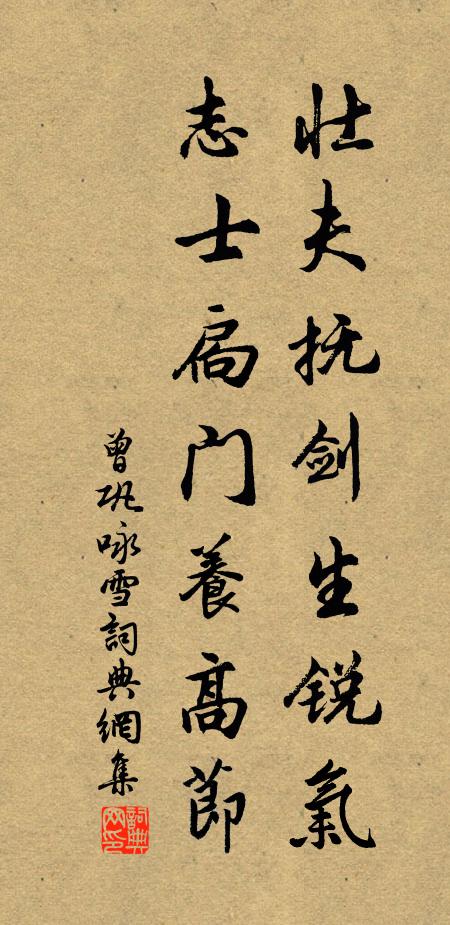 壮夫抚剑生锐氣
志士扃门養高節
曾巩咏雪詞典網集
詞典网印